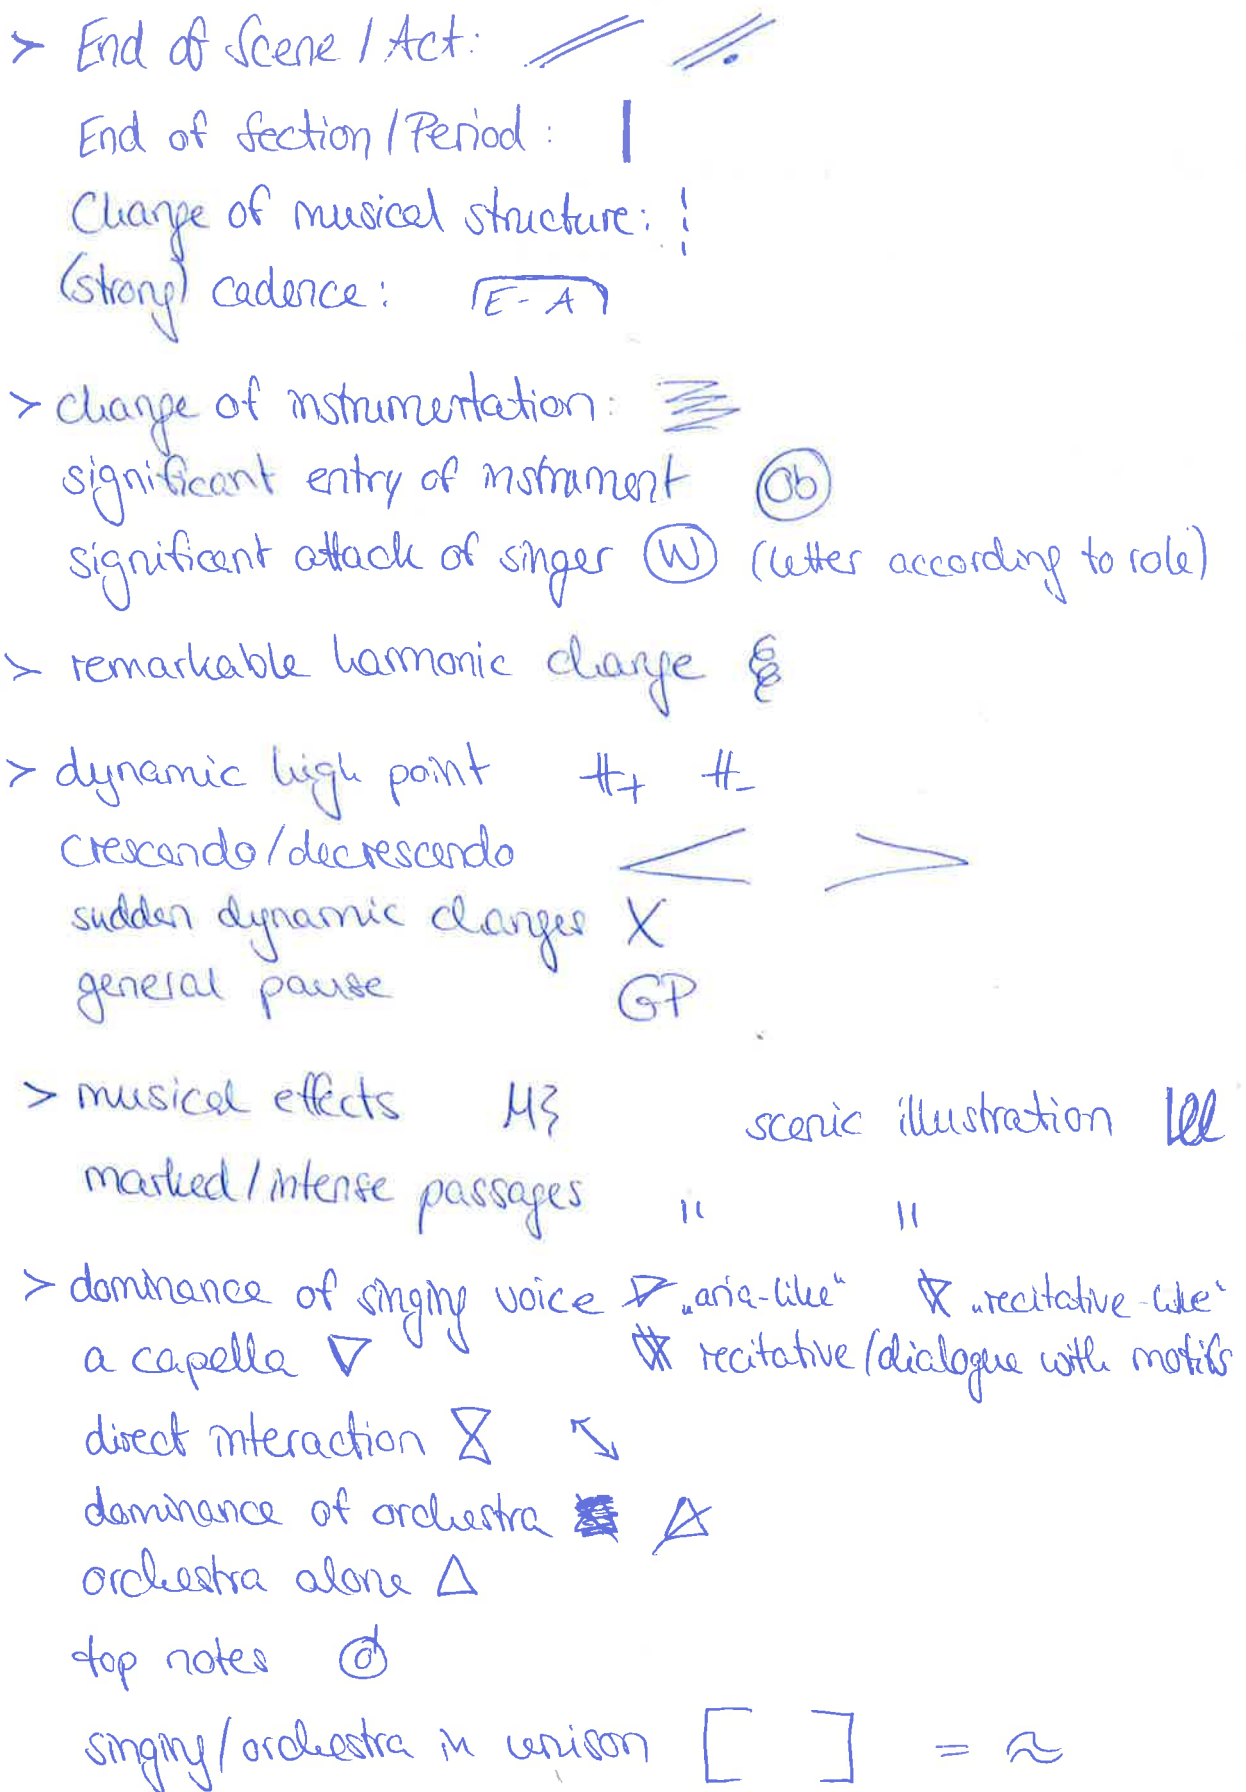 > End of Scene / Act:
End of Section / Period:
Change of musical structure:
(strong) cadence: E - A
> change of instrumentation:
significant entry of instrument Ob
significant attack of singer W (letter according to role)
> remarkable harmonic change
> dynamic high point #+ #-
crescendo/decrescendo < >
sudden dynamic changes X
general pause GP
> musical effects scenic illustration
marked/intense passages " "
> dominance of singing voice „aria-like“ „recitative-like“
a capella recitative/dialogue with motifs
direct interaction
dominance of orchestra
orchestra alone Δ
top notes
singing/orchestra in unison [ ] = ≈